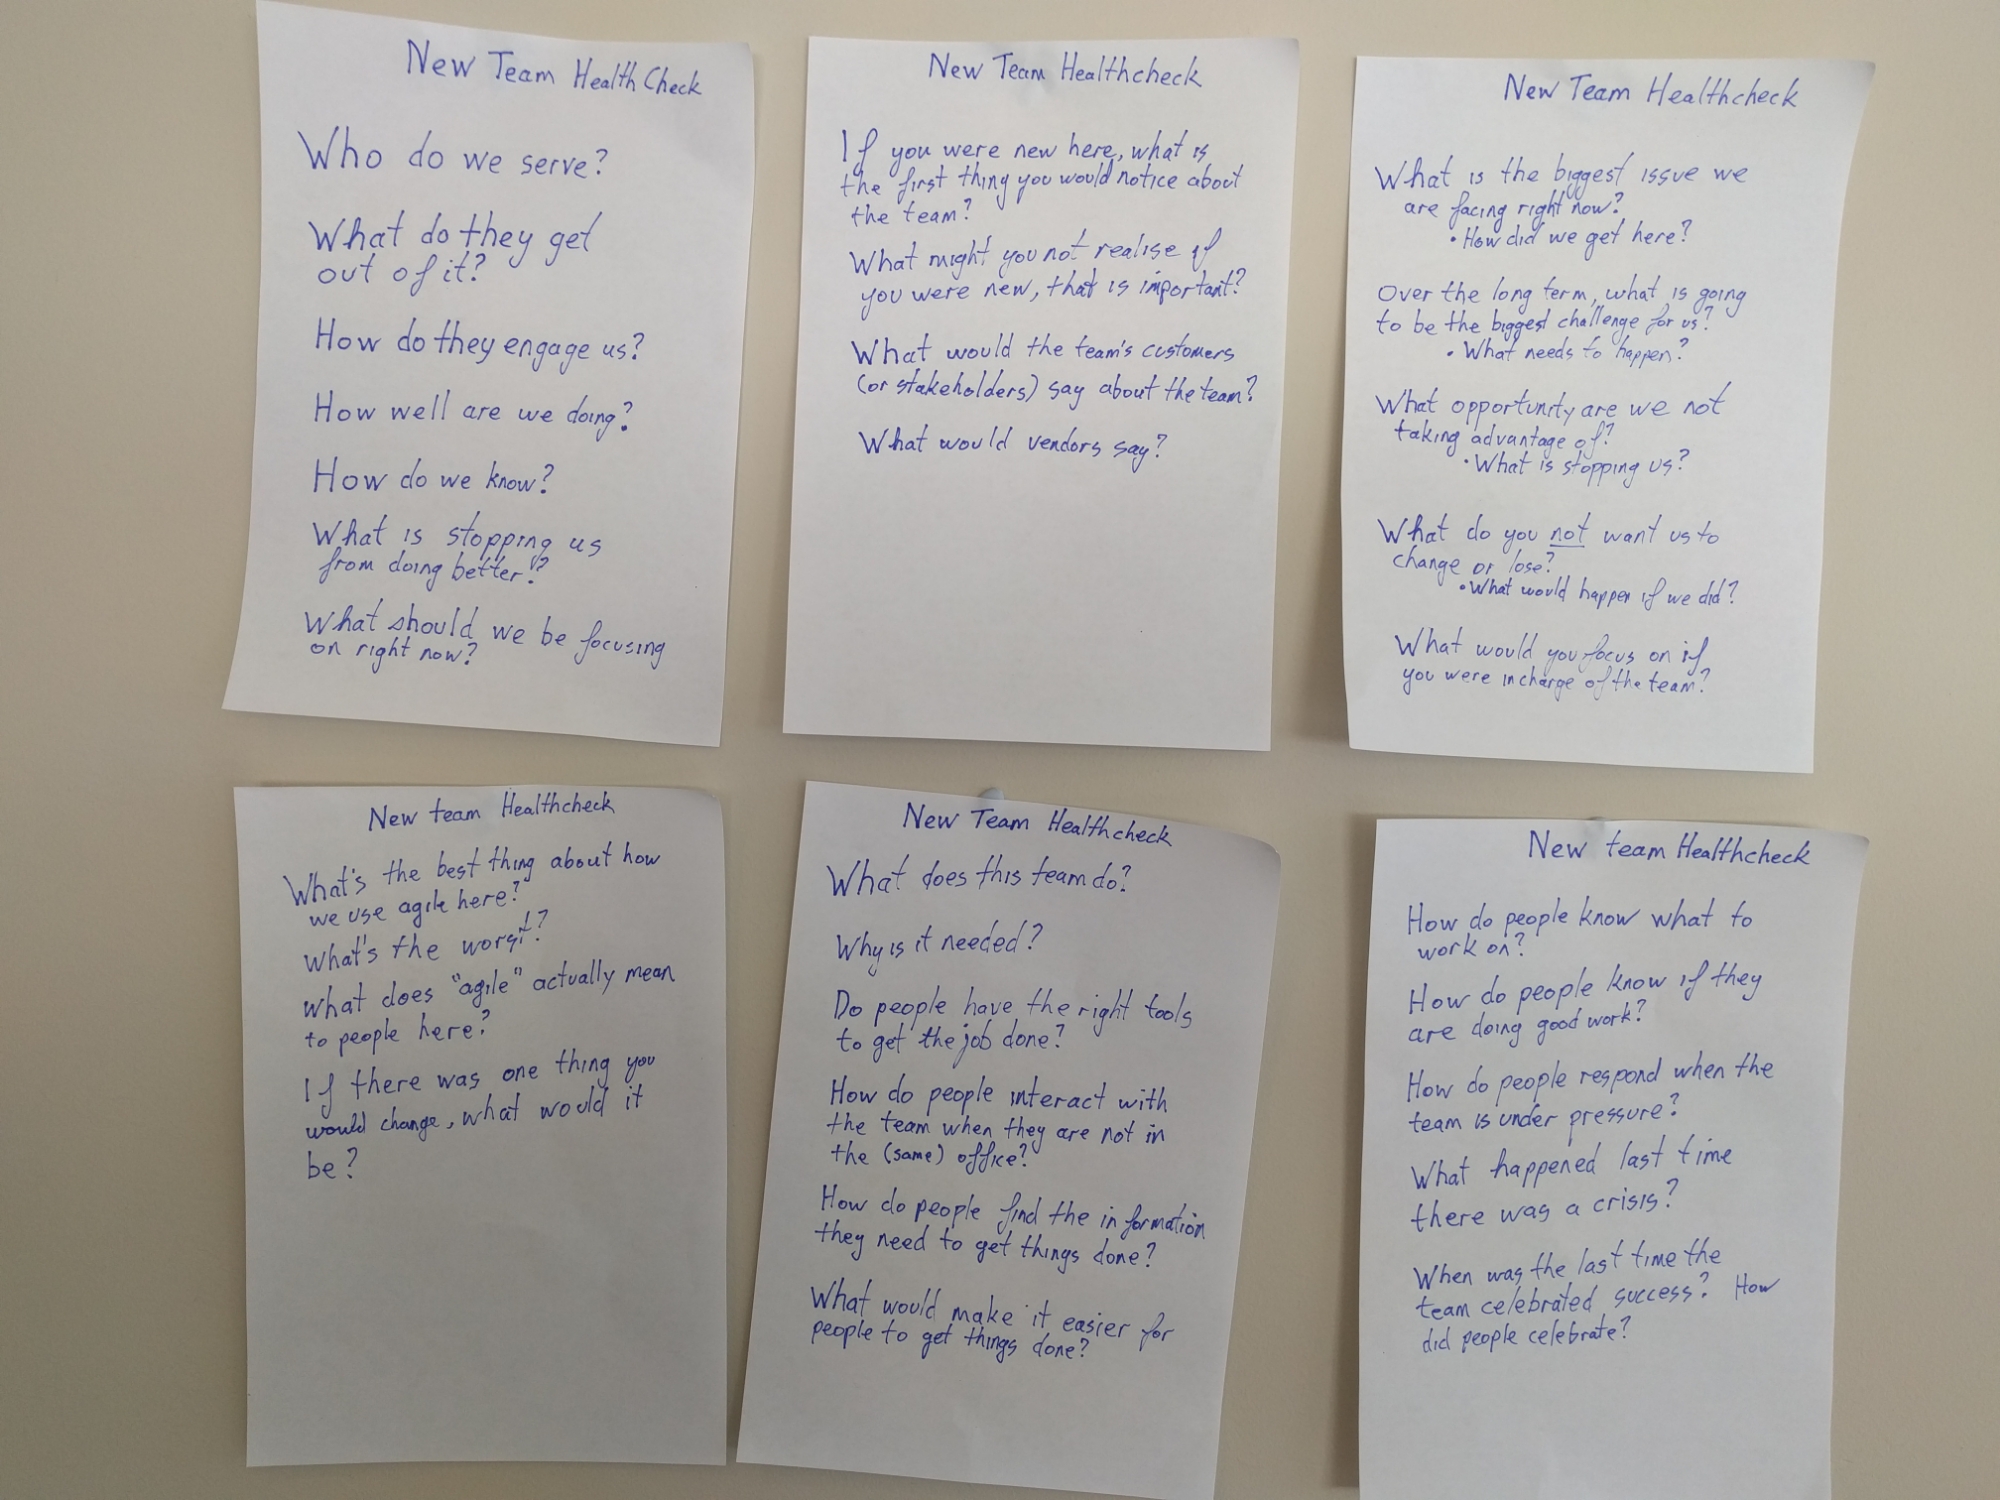 New Team Health Check
Who do we serve?
What do they get
out of it?
How do they engage us?
How well are we doing?
How do we know?
What is stopping us
from doing better?
What should we be focusing
on right now?
New Team Healthcheck
If you were new here, what is
the first thing you would notice about
the team?
What might you not realise if
you were new, that is important?
What would the team's customers
(or stakeholders) say about the team?
What would vendors say?
New Team Healthcheck
What is the biggest issue we
are facing right now?
• How did we get here?
Over the long term, what is going
to be the biggest challenge for us?
• What needs to happen?
What opportunity are we not
taking advantage of?
• What is stopping us?
What do you not want us to
change or lose?
• What would happen if we did?
What would you focus on if
you were in charge of the team?
New team Healthcheck
What's the best thing about how
we use agile here?
What's the worst?
What does "agile" actually mean
to people here?
If there was one thing you
would change, what would it
be?
New Team Healthcheck
What does this team do?
Why is it needed?
Do people have the right tools
to get the job done?
How do people interact with
the team when they are not in
the (same) office?
How do people find the information
they need to get things done?
What would make it easier for
people to get things done?
New team Healthcheck
How do people know what to
work on?
How do people know if they
are doing good work?
How do people respond when the
team is under pressure?
What happened last time
there was a crisis?
When was the last time the
team celebrated success? How
did people celebrate?